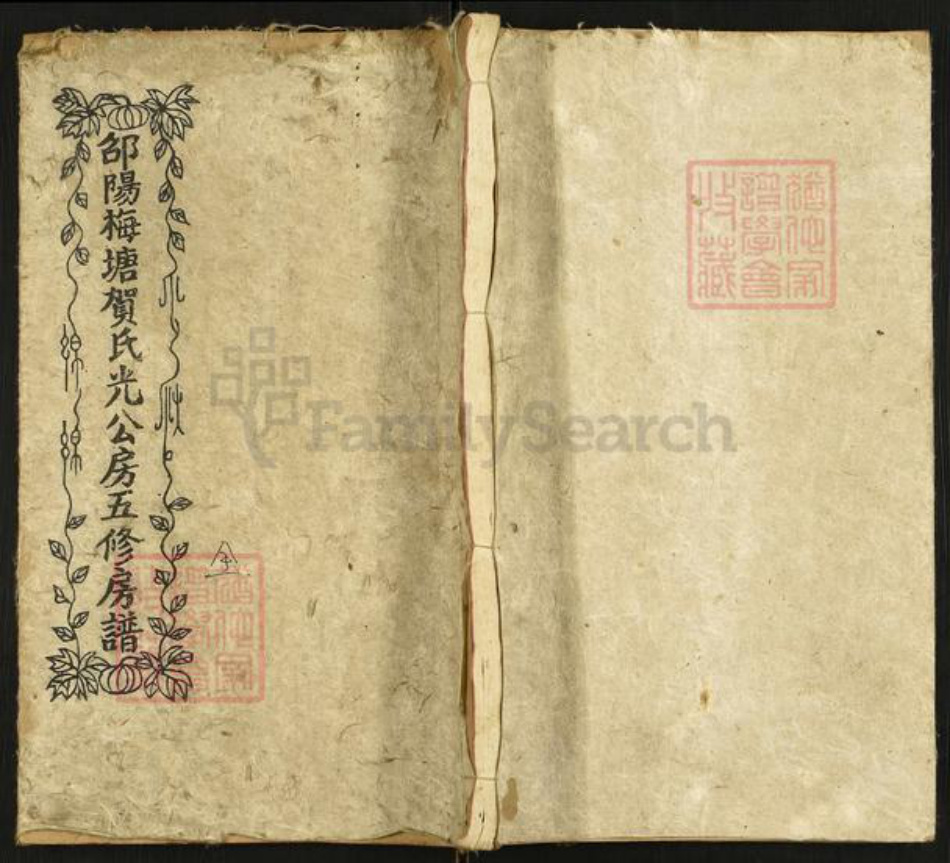 邵陽梅塘賀氏光公房五修房譜
瓜瓞
綿綿
猶他家
譜學會
收藏
FamilySearch